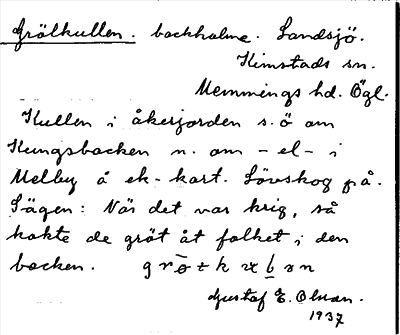 Grölkullen. backholme. Landsjö.
Kimstads sn.
Memmings hd. Ögl.
Kullen i åkerjorden s.ö om
Kungsbacken n. om - el - i
Melby å ek-kart. Lövskog på.
Sägen: När det var krig, så
kokte de gröt åt folket i den
backen.
Gustaf E. Olson.
1937